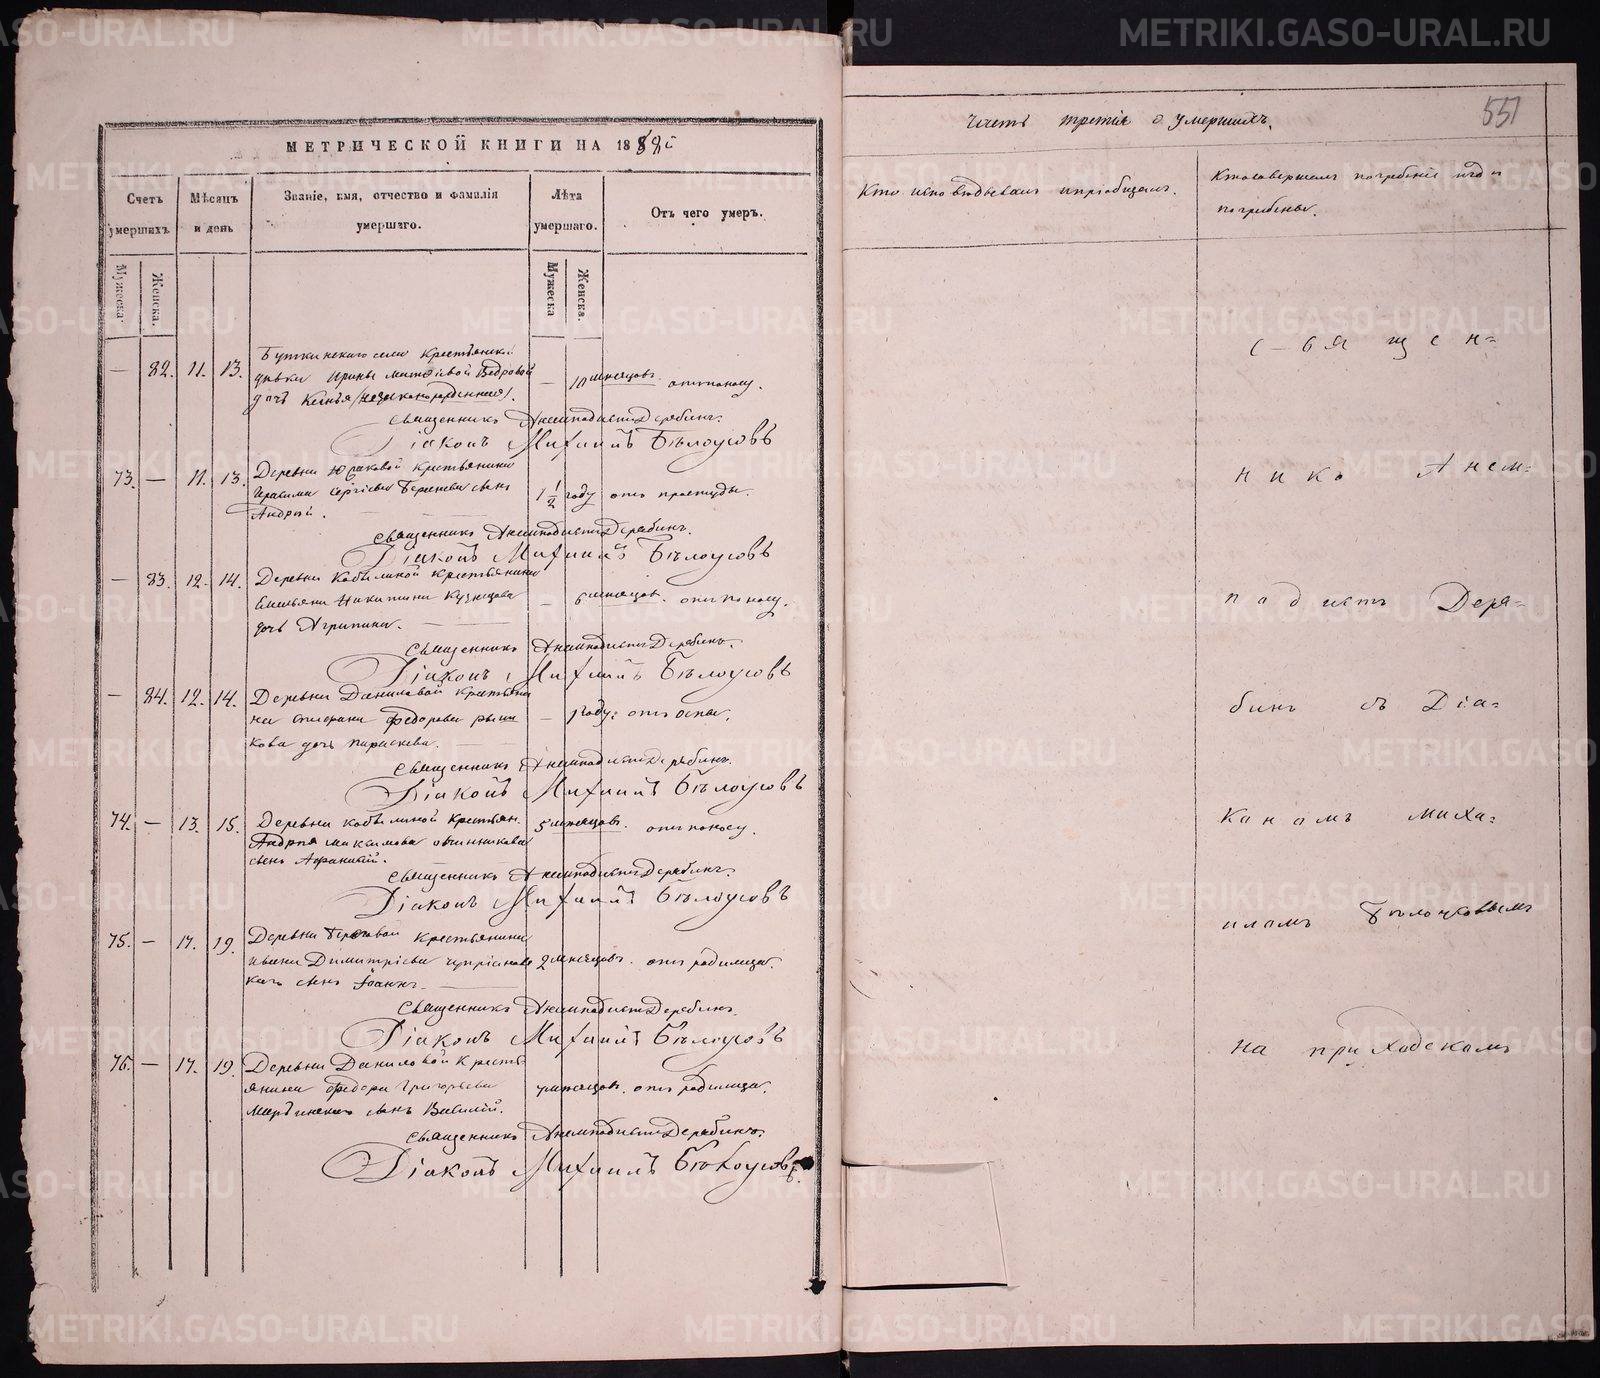 МЕТРИЧЕСКОЙ КНИГИ НА 188
Счетъ умершихъ
Мѣсяцъ и день
Званіе, имя, отчество и фамилія умершаго.
Лѣта умершаго.
Отъ чего умеръ.
Мужеска.
Женска.
Мужеска
Женска.
— 82. 11. 13. Буткинскаго села Крестьянской
дѣвки Ирины Матѳіевой Ѳедоровой — 10 мѣсяцовъ. отъ поносу.
дочь Ксенья /незаконорожденная/.
Священникъ Анемподистъ Дерябинъ.
Діаконъ Михаилъ Бѣлоусовъ
73. — 11. 13. Деревни Крестьянина
Герасима Сергіева сынъ 1 1/2 году отъ простуды.
Андрей.
Священникъ Анемподистъ Дерябинъ.
Діаконъ Михаилъ Бѣлоусовъ
— 83. 12. 14. Деревни Кобылиной Крестьянина
Емельяна Никитина Кузнецова — 6 мѣсяцов. отъ поносу.
дочь Агрипина.
Священникъ Анемподистъ Дерябинъ.
Діаконъ Михаилъ Бѣлоусовъ
— 84. 12. 14. Деревни Даниловой Крестьяни
на Федорова — 1 году: отъ оспы.
кова дочь Параскева.
Священникъ Анемподистъ Дерябинъ.
Діаконъ Михаилъ Бѣлоусовъ
74. — 13. 15. Деревни Кобылиной Крестьян.
Андрея Максимова Овчинникова 5 мѣсяцовъ. отъ поносу.
сынъ Афанасій.
Священникъ Анемподистъ Дерябинъ.
Діаконъ Михаилъ Бѣлоусовъ
75. — 17. 19. Деревни Крестьянина
Ивана Димитріева 2 мѣсяцовъ. отъ родимца.
сынъ Іоаннъ.
Священникъ Анемподистъ Дерябинъ.
Діаконъ Михаилъ Бѣлоусовъ
76. — 17. 19. Деревни Даниловой Кресть
янина Федора Григорьева мѣсяцов. отъ родимца.
сынъ Василій.
Священникъ Анемподистъ Дерябинъ.
Діаконъ Михаилъ Бѣлоусовъ
551
Часть третія о умершихъ.
Кто исповѣдывалъ и пріобщалъ.
Кто совершалъ погребеніе и гдѣ
погребены.
Священ=
никъ Анем=
подистъ Деря=
бинъ съ Діа=
кономъ Миха=
иломъ Бѣлоусовымъ
на приходскомъ
METRIKI.GASO-URAL.RU